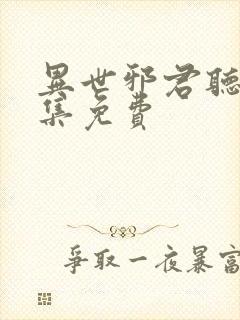 異世邪君聽
集免費
爭取一夜暴富